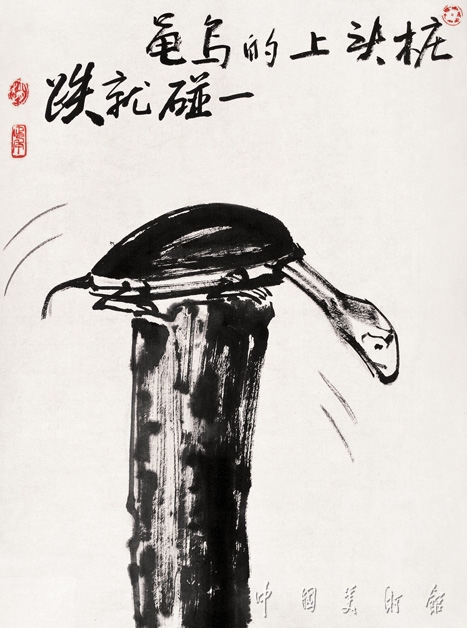 桩头上的乌龟
一碰就跌
中国美术馆